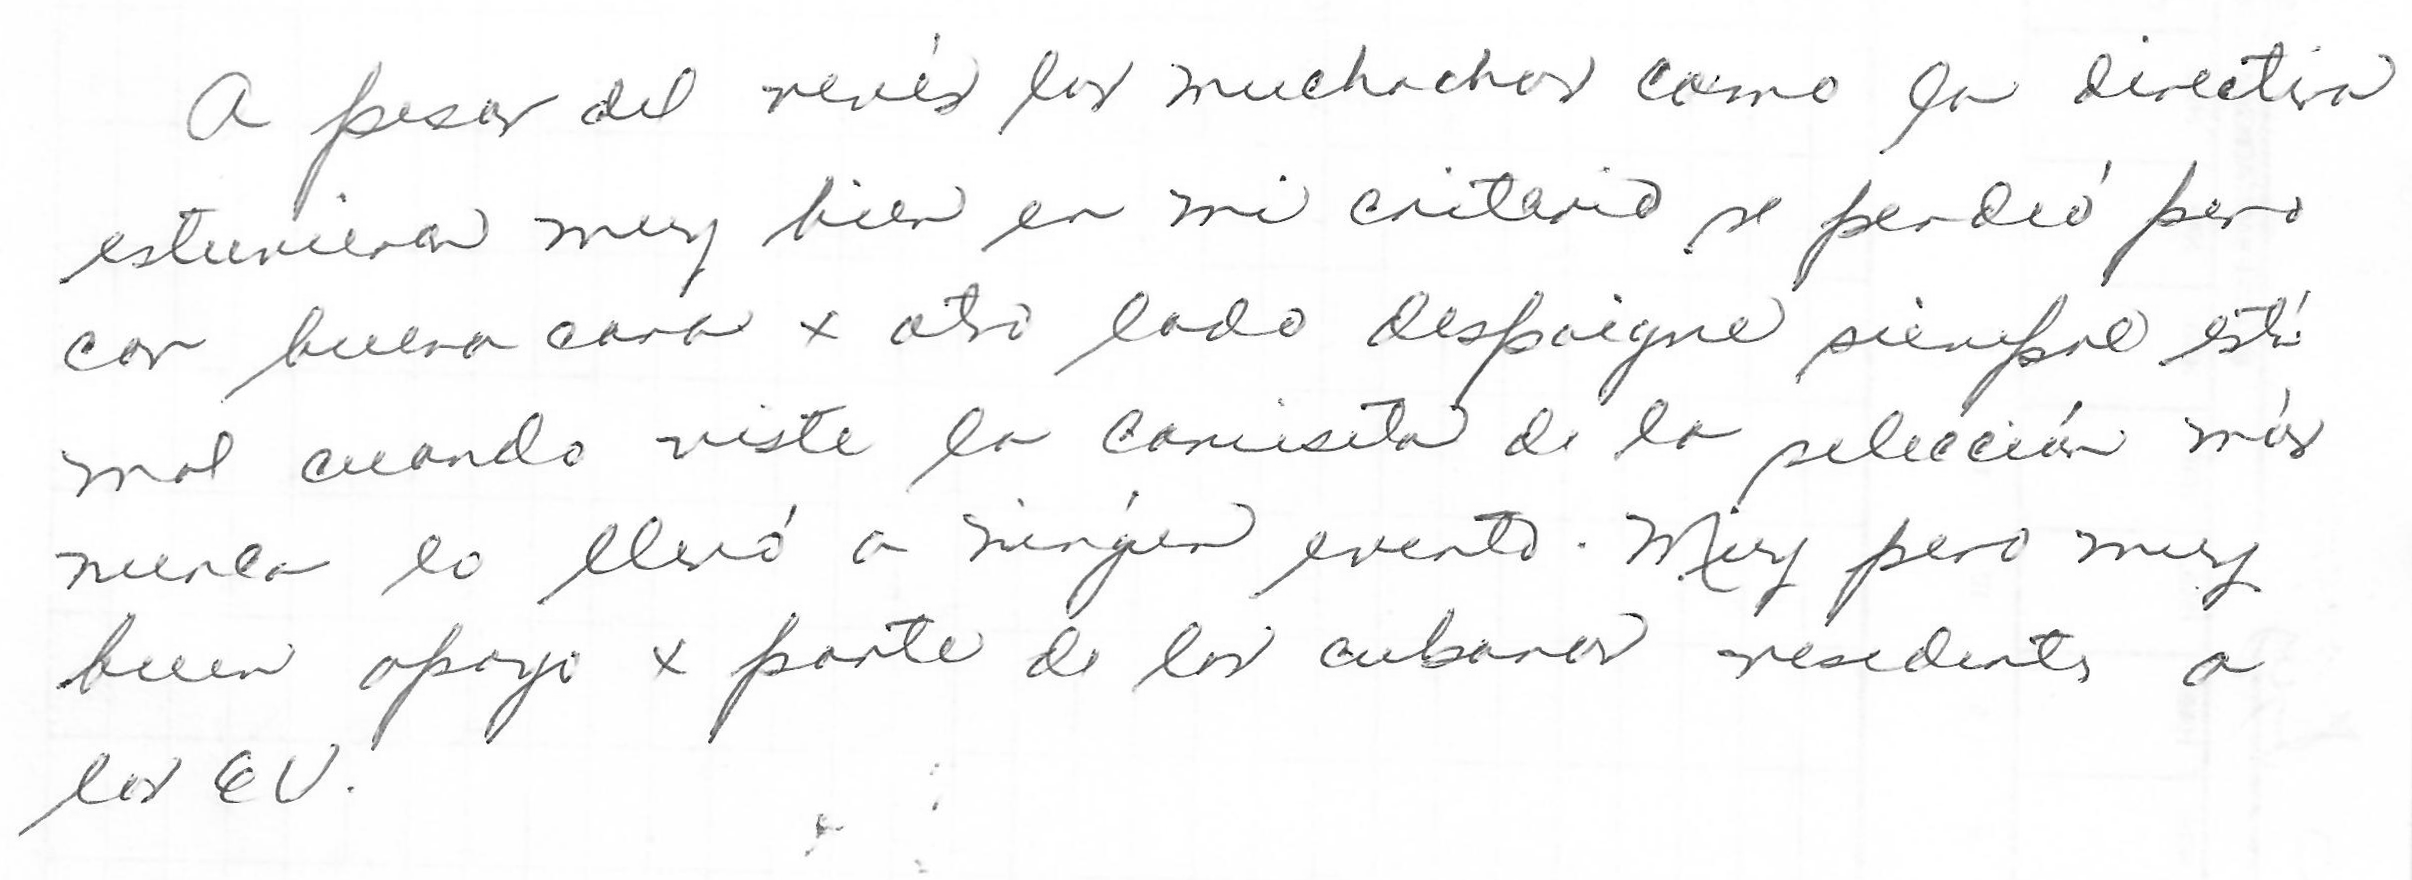 A pesar del revés los muchachos como la directiva
estuvieron muy bien en mi criterio se perdió pero
con buena cara x otro lado despaigne siempre está
mal cuando viste la camiseta de la selección más
nunca lo llevó a ningún evento. Muy pero muy
buen apoyo x parte de los cubanos residents a
los EU.